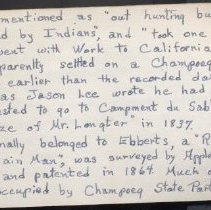 mentioned as "out hunting bu
d by Indians", and "took one
pent with Work to California
parently settled on a Champoeg
earlier than the recorded da
as Jason Lee wrote he had
sted to go to Campment du Sab
ze of Mr. Longter" in 1837.
nally belonged to Ebberts, a "R
ain Man", was surveyed by Apple
and patented in 1864. Much o
occupied by Champoeg State Par